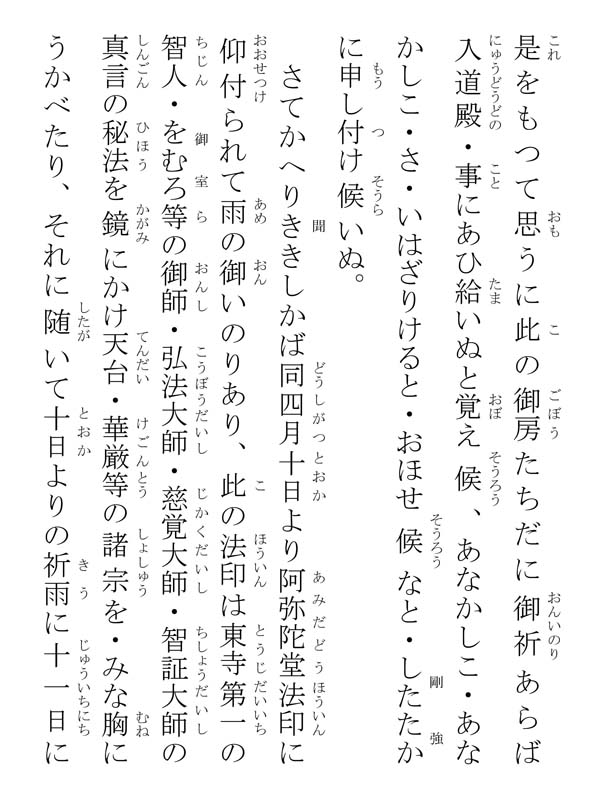 是をもつて思うに此の御房たちだに御祈あらば
入道殿・事にあひ給いぬと覚え候、あなかしこ・あな
かしこ・さ・いはざりけると・おほせ候なと・したたか
に申し付け候いぬ。
さてかへりききしかば同四月十日より阿弥陀堂法印に
仰付られて雨の御いのりあり、此の法印は東寺第一の
智人・をむろ等の御師・弘法大師・慈覚大師・智証大師の
真言の秘法を鏡にかけ天台・華厳等の諸宗を・みな胸に
うかべたり、それに随いて十日よりの祈雨に十一日に